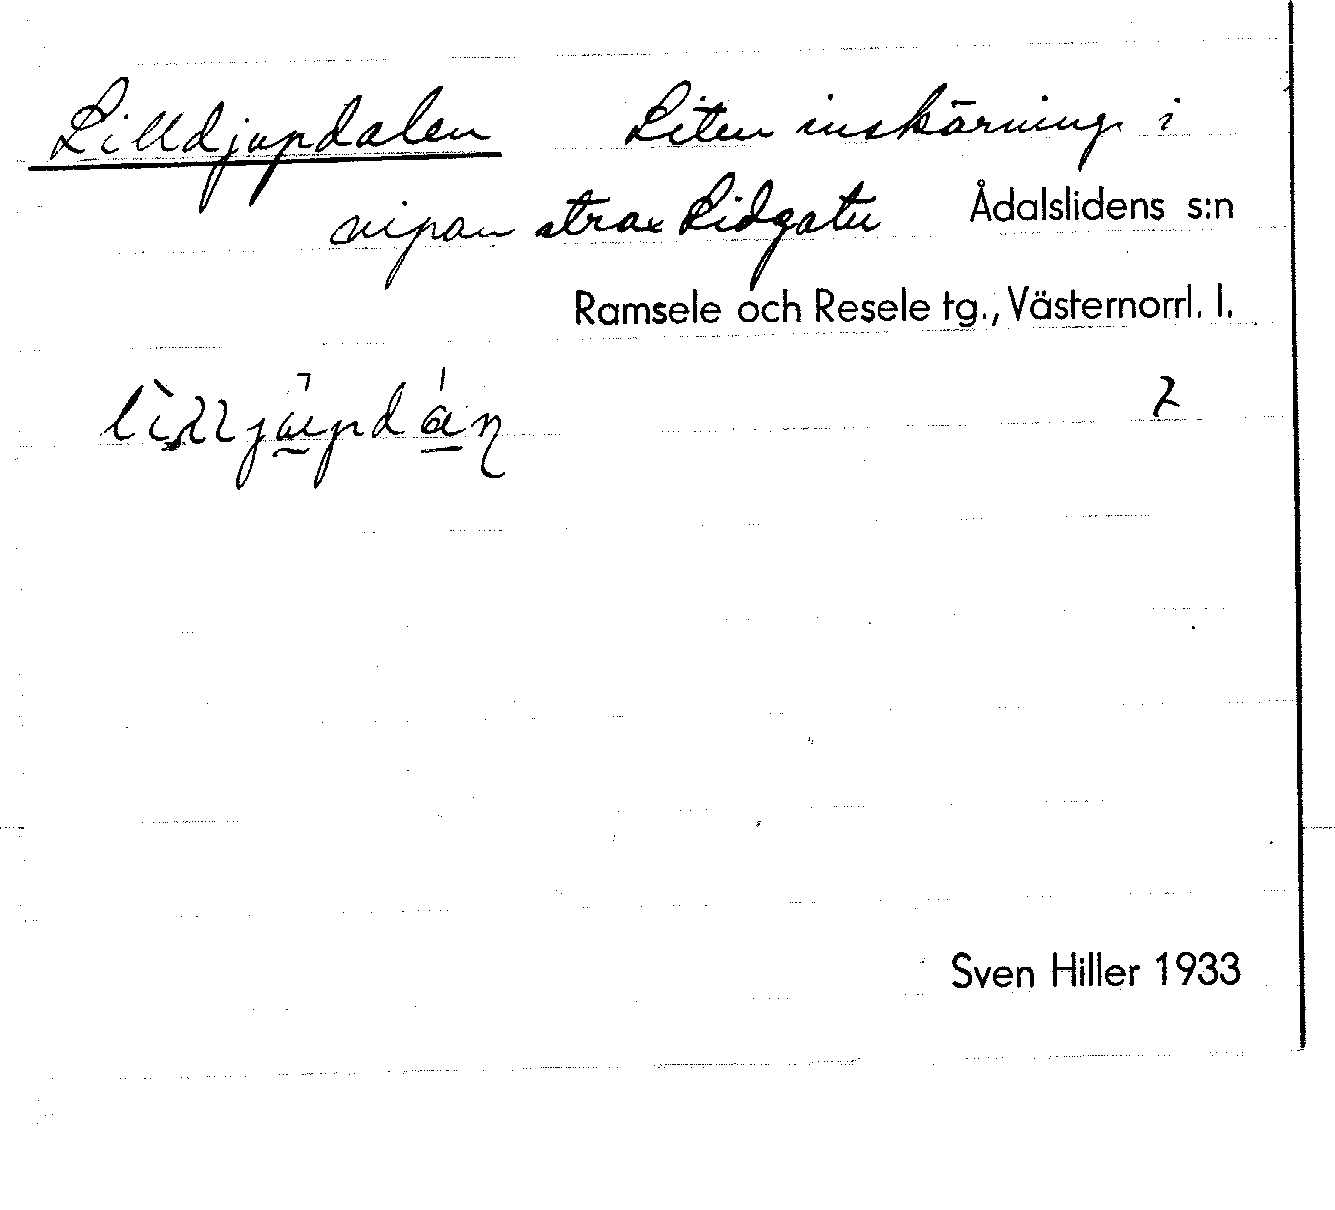 Lilldjupdalen Liten inskärning i
nipan strax Lidgatu Ådalslidens s:n
Ramsele och Resele tg., Västernorrl. l.
Z
Sven Hiller 1933